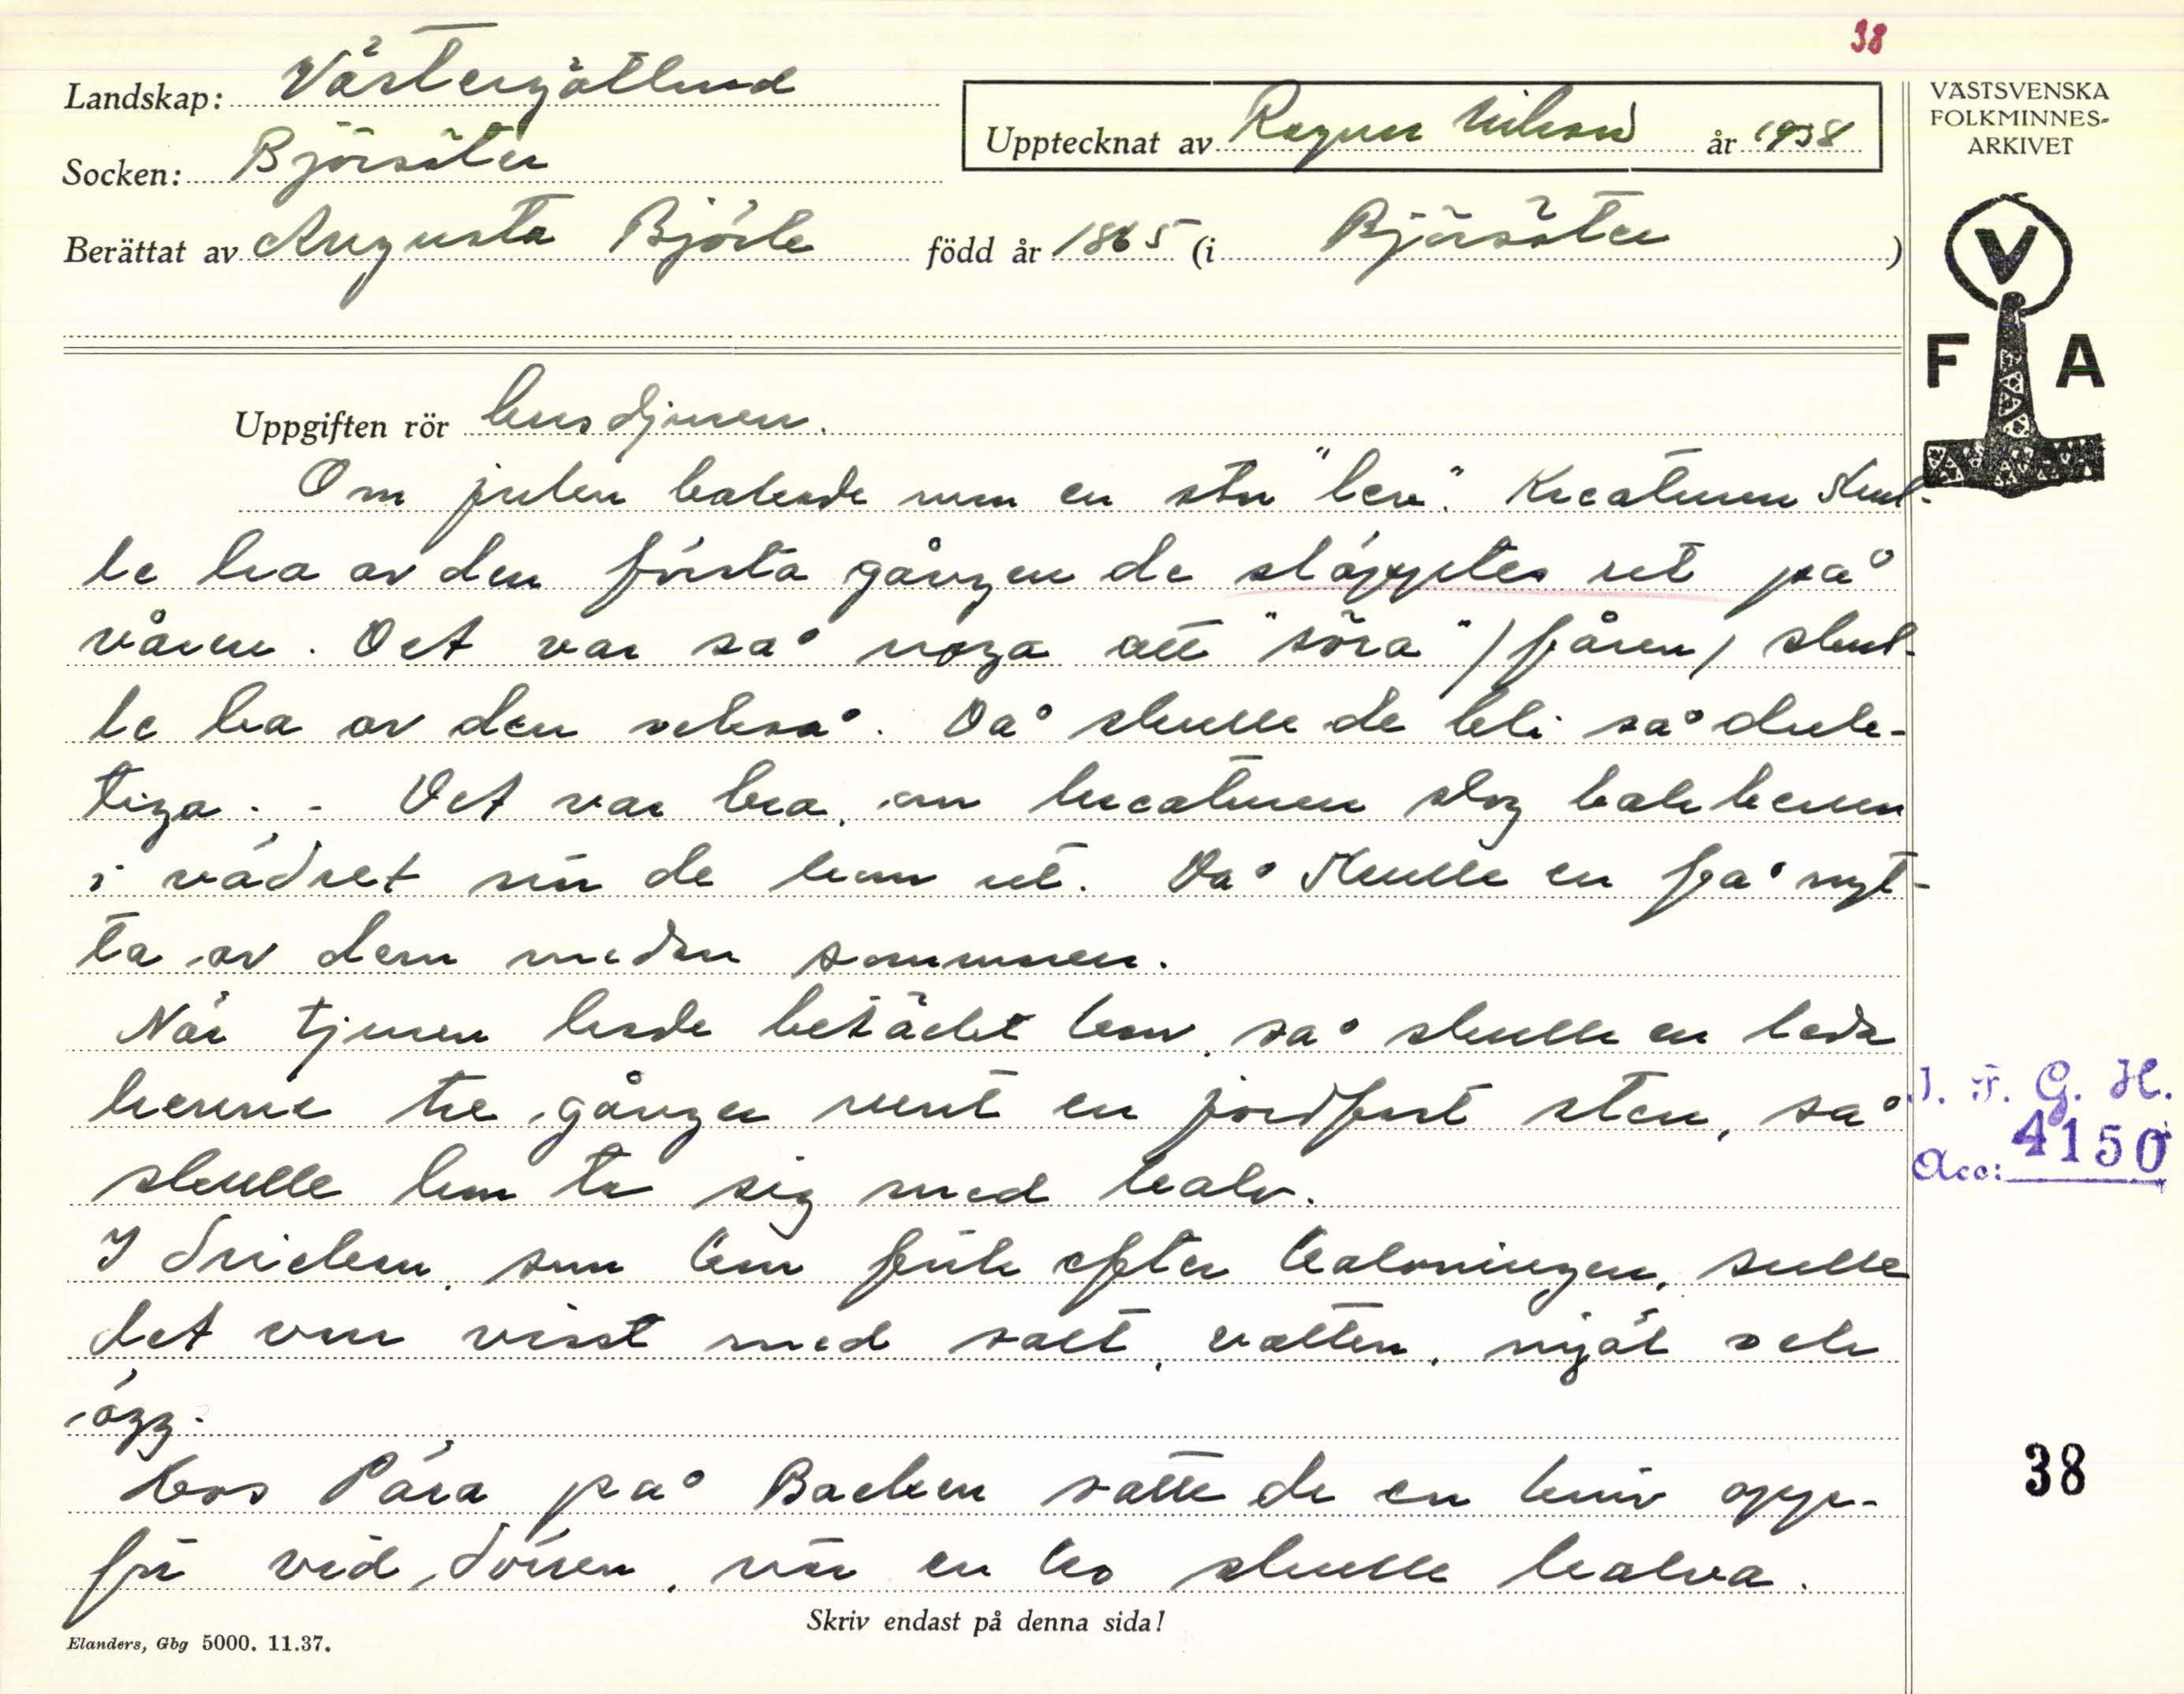 38
Landskap: Västergötland
Socken: Björsäter
Upptecknat av Ragnar Nilsson år 1938
Berättat av Augusta Björk född år 1865 (i Björsäter)
VÄSTSVENSKA
FOLKMINNES-
ARKIVET
V
F A
Uppgiften rör husdjuren.
Om julen bakade mm en stor "lev". Kreaturen skul-
le ha av den första gången de släpptes ut på
våren. Det var så noga att "söra" /fåren/ skul-
le ha av den också. Då skulle de bli så duk-
tiga. - Det var bra, om kreaturen slog bakbenen
i vädret när de kom ut. Då skulle en få nyt-
ta av dem under sommaren.
När tjuren hade betäckt kon, så skulle en leda
henne tre gånger runt en jordfast sten, så
skulle hon ta sig med kalv.
I dricken, som kon fick efter kalvningen, sulle
det vara visst med salt, vatten, mjöl och
ägg.
Hos Pära på Backen satte de en kniv oppe-
för vid dören, när en ko skulle kalva.
I. F. G. H.
Acc: 4150
38
Skriv endast på denna sida!
Elanders, Gbg 5000. 11.37.